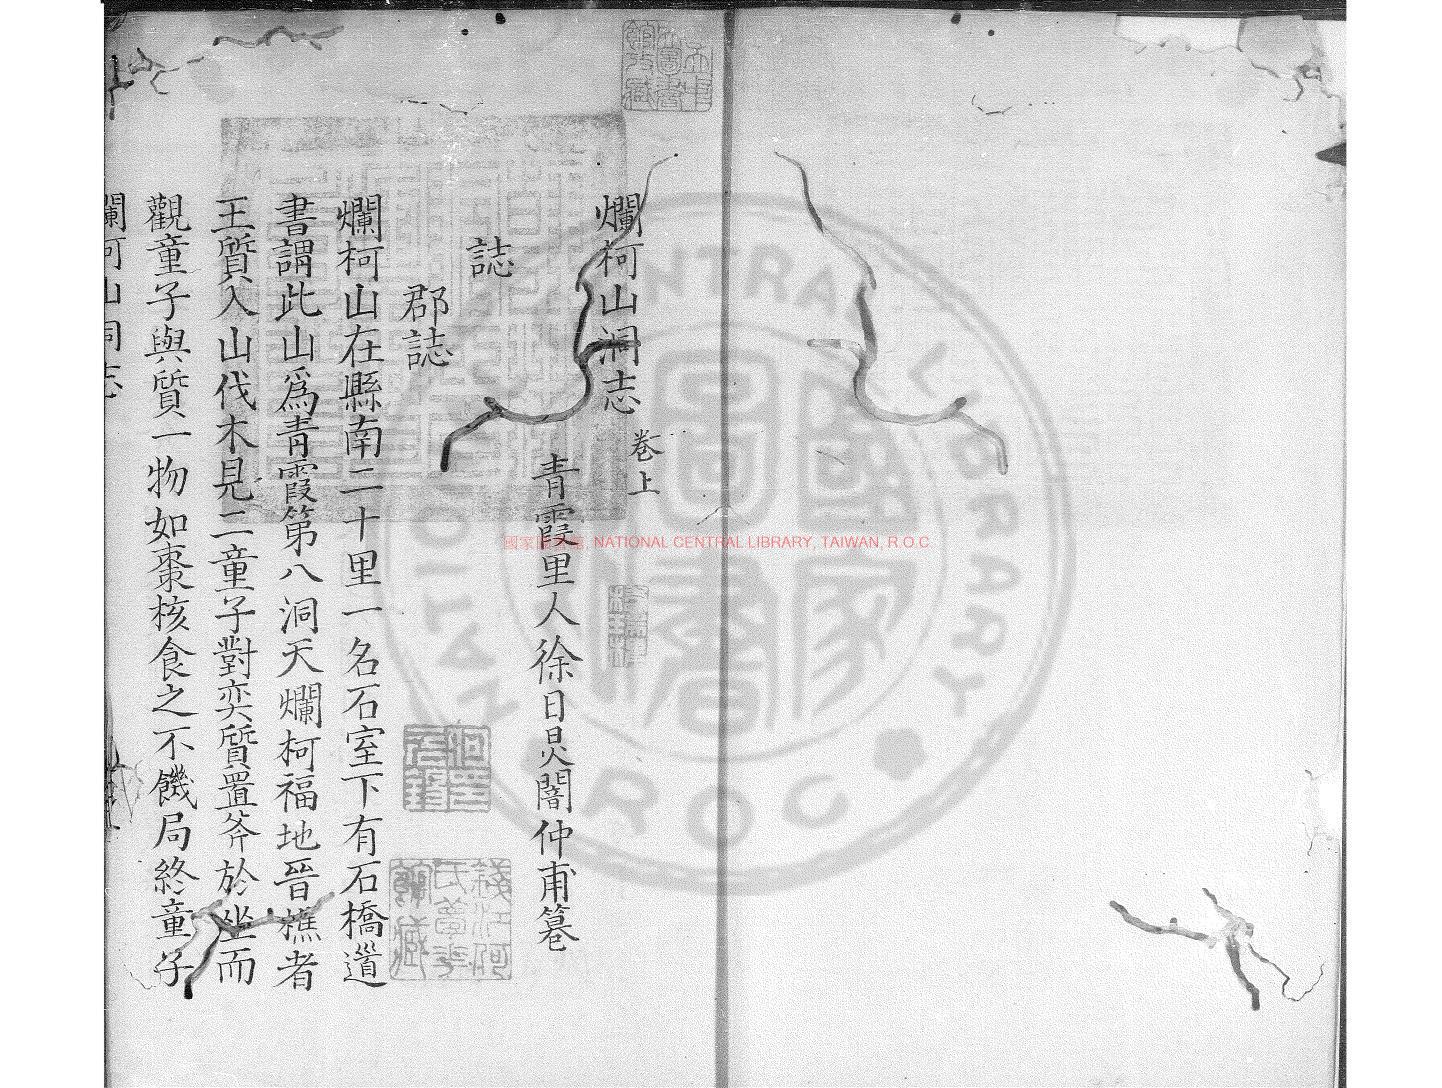 爛柯山洞志 卷上
青霞里人徐日炅闇仲甫纂
誌
郡誌
爛柯山在縣南二十里一名石室下有石橋道
書謂此山爲青霞第八洞天爛柯福地晉樵者
王質入山伐木見二童子對奕質置斧於坐而
觀童子與質一物如棗核食之不饑局終童子
爛柯山洞志
NATIONAL CENTRAL LIBRARY, TAIWAN, R.O.C